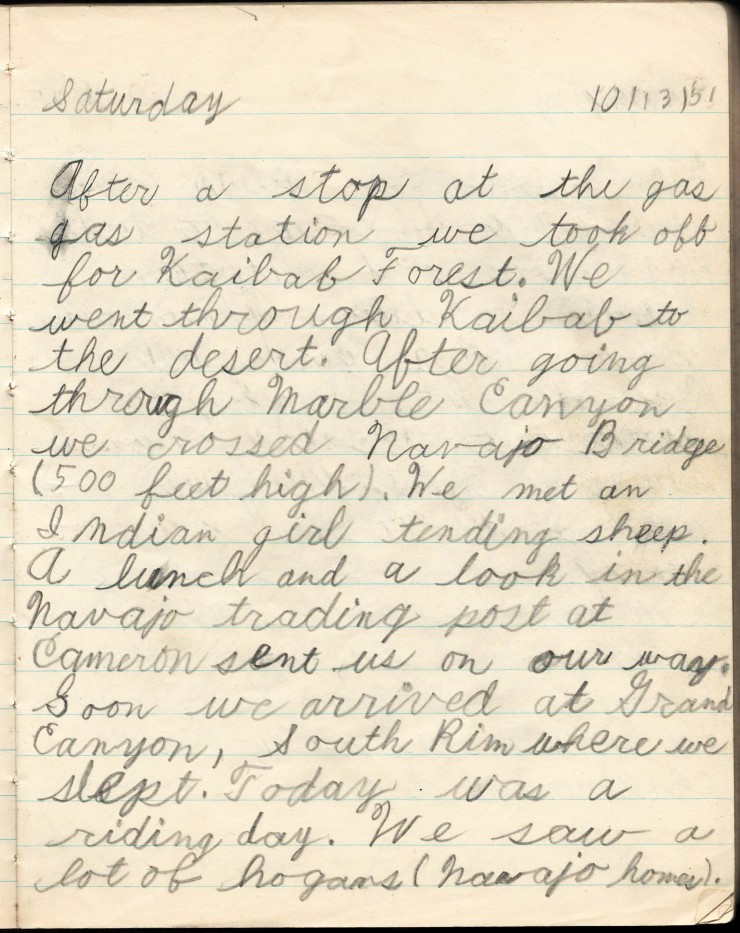 Saturday 10/13/51
After a stop at the gas
gas station we took off
for Kaibab Forest. We
went through Kaibab to
the desert. After going
through Marble Canyon
we crossed Navajo Bridge
(500 feet high). We met an
Indian girl tending sheep.
A lunch and a look in the
Navajo trading post at
Cameron sent us on our way.
Soon we arrived at Grand
Canyon, South Rim where we
slept. Today was a
riding day. We saw a
lot of hogans (Navajo homes).